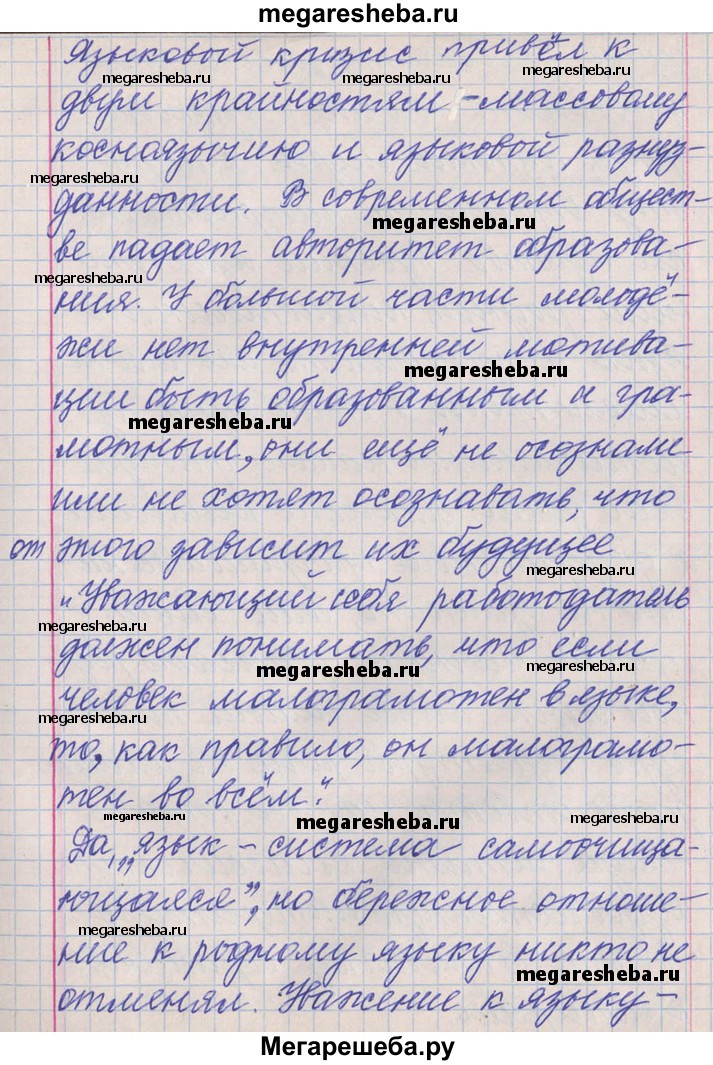 megaresheba.ru
Языковой кризис привёл к
megaresheba.ru megaresheba.ru
двум крайностям - массовому
косноязычию и языковой разнуз-
megaresheba.ru
данности. В современном общест-
megaresheba.ru
ве падает авторитет образова-
megaresheba.ru
ния. У большой части молодё-
жи нет внутренней мотива-
megaresheba.ru
ции быть образованным и гра-
megaresheba.ru
мотным, они ещё не осознали
или не хотят осознавать, что
от этого зависит их будущее
megaresheba.ru
„Уважающий себя работодатель
megaresheba.ru
должен понимать, что если
megaresheba.ru megaresheba.ru
человек малограмотен в языке,
megaresheba.ru
то, как правило, он малограмо-
тен во всём“.
megaresheba.ru megaresheba.ru
Да, „язык - система самоочища-
megaresheba.ru
ющаяся”, но бережное отноше-
megaresheba.ru
ние к родному языку никто не
megaresheba.ru
отменял. Уважение к языку -
Мегарешеба.ру